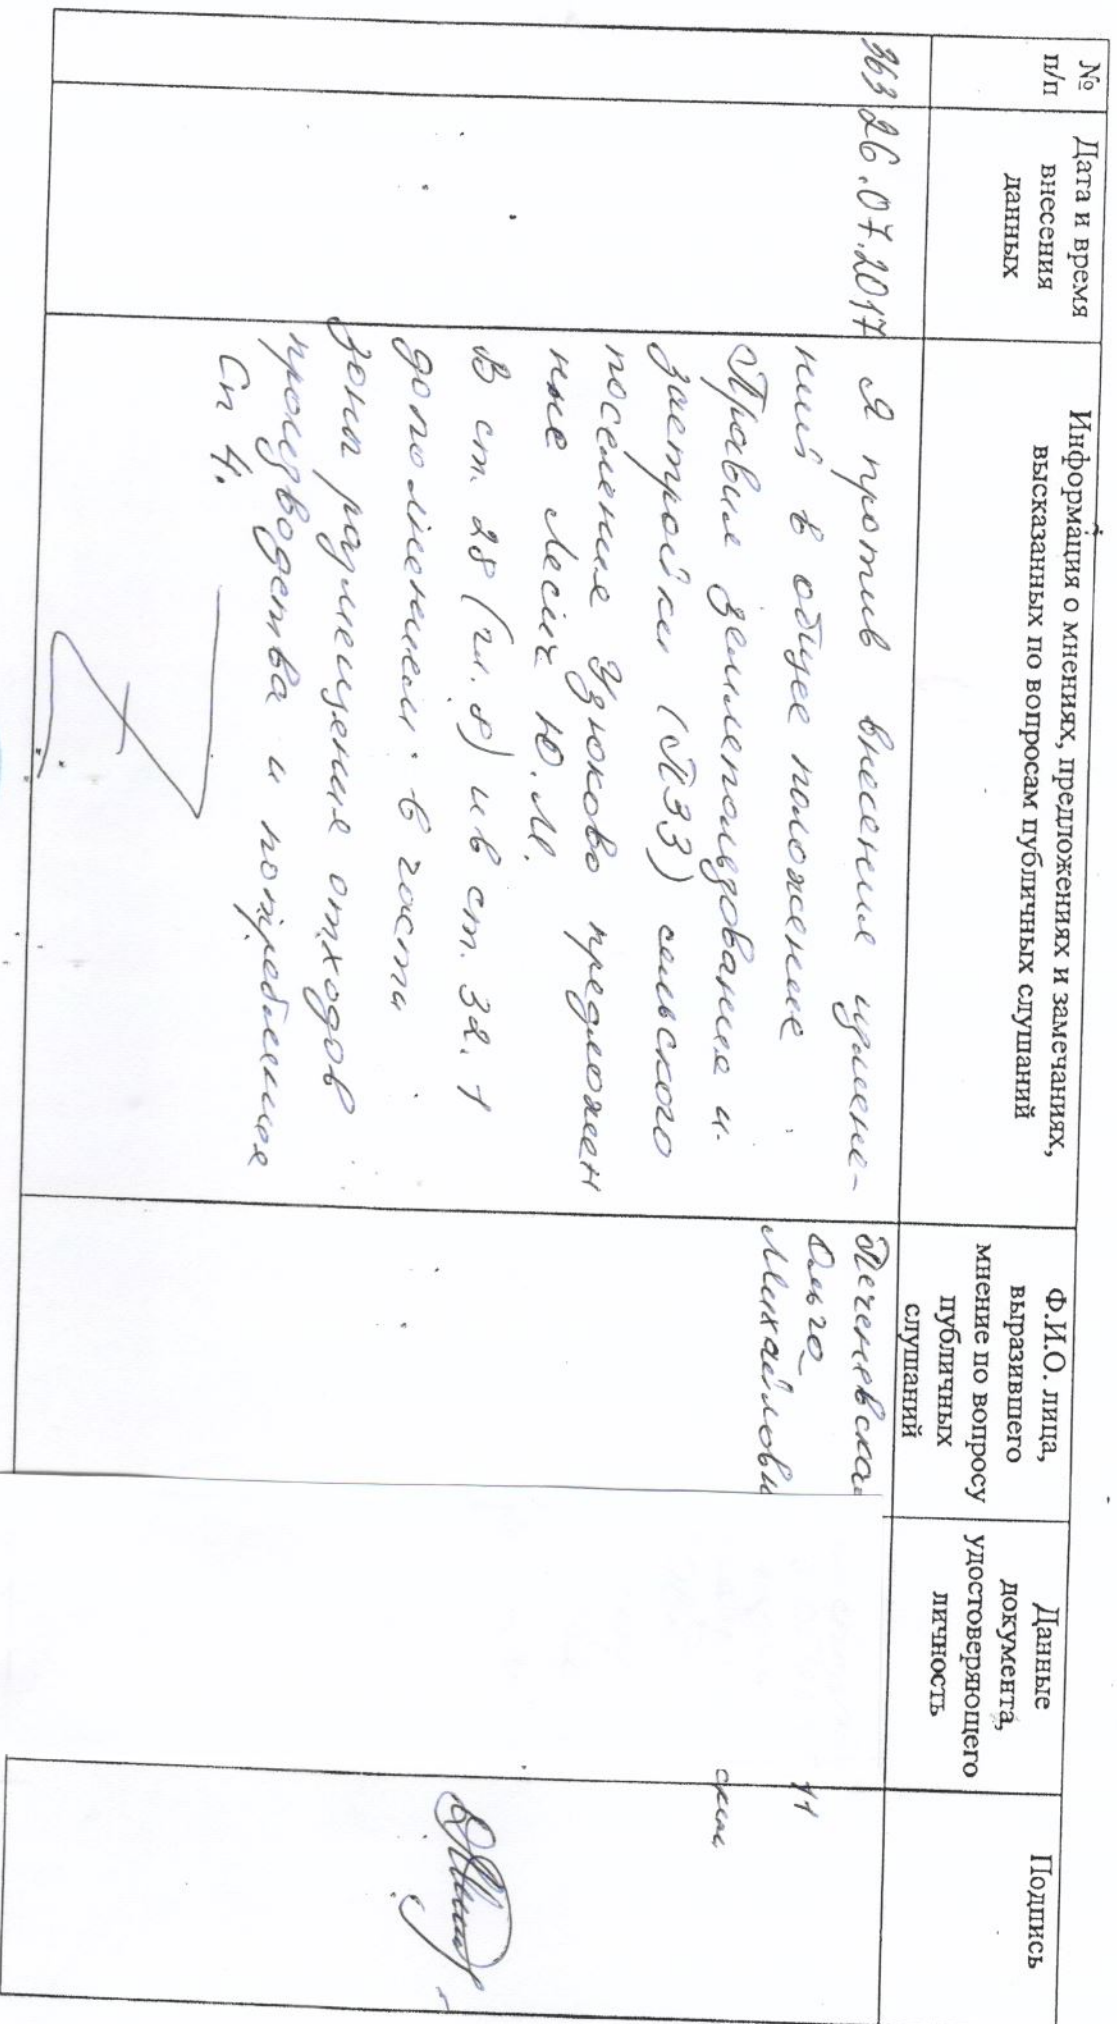 №
п/п
Дата и время
внесения
данных
Информация о мнениях, предложениях и замечаниях,
высказанных по вопросам публичных слушаний
Ф.И.О. лица,
выразившего
мнение по вопросу
публичных
слушаний
Данные
документа,
удостоверяющего
личность
Подпись
363
26.07.2017
Я против внесения измене-
ний в общее положение
Правил землепользования и
застройки (ПЗЗ) сельского
поселения Узюково предложен
ные Лесих Ю.М.
В ст. 28 (гл. 8) и в ст. 32.1
дополнением в части
зоны размещения отходов
производства и потребления
Сп 4.
Печеневская
Ольга
Михайловн